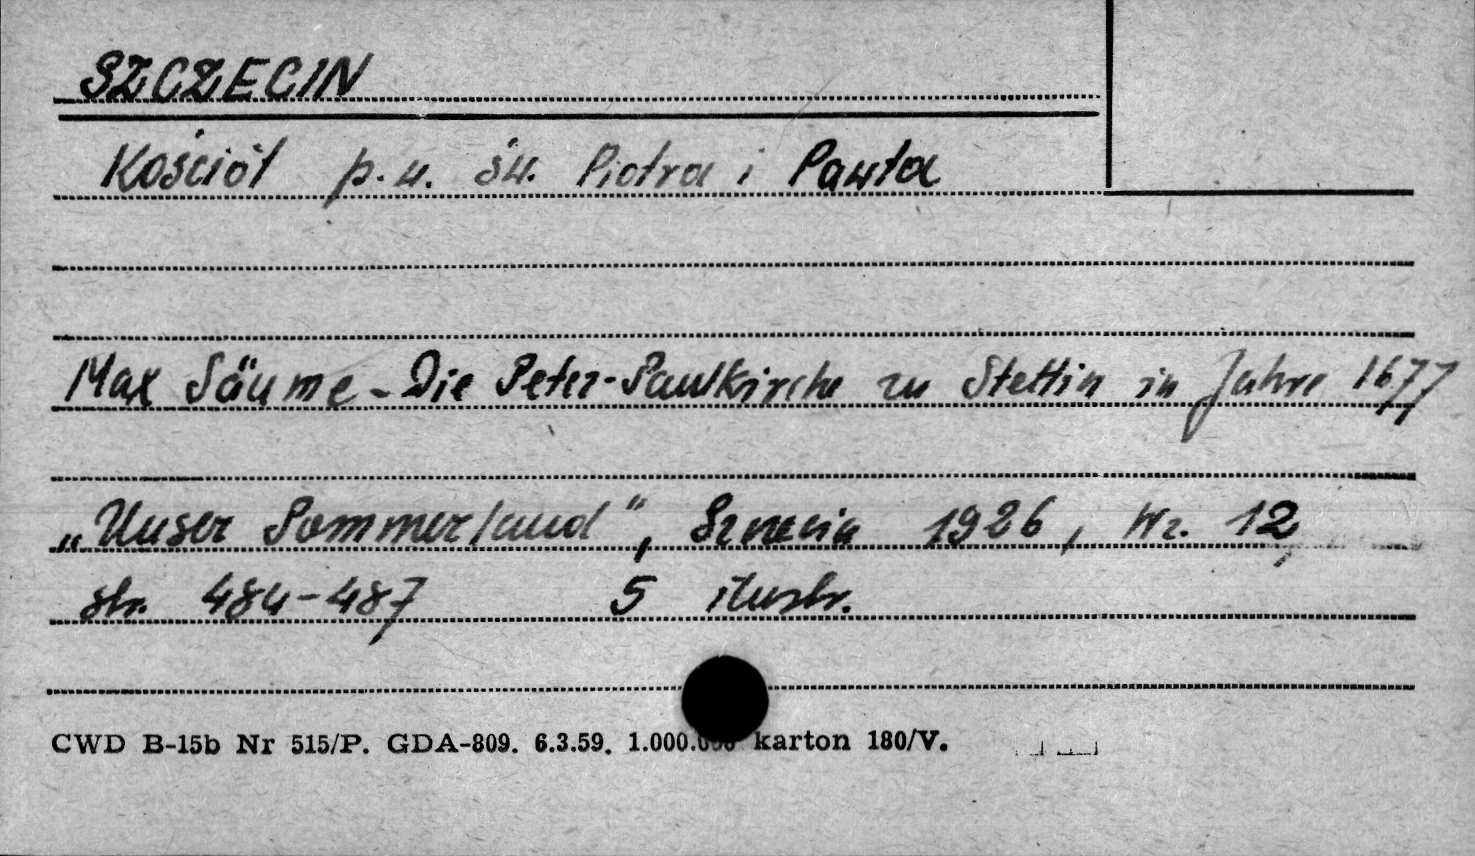 SZCZECIN
Kościół p.w. św. Piotra i Pawła
Max Säume - Die Peter-Paulkirche zu Stettin in Jahre 1677
„Unser Pommerland", Szczecin 1926, Nr. 12
str. 484-487 5 ilustr.
CWD B-15b Nr 515/P. GDA-809. 6.3.59. 1.000.000 karton 180/V.